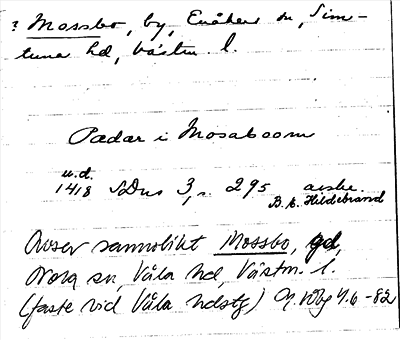 ? Mossbo, by, Enåkers sn, Sim-
tuna hd, Västm. l.
Pædar i Mosaboom
u.d.
1418 SDns 3, s. 295 avskr.
B. E. Hildebrand
Avser sannolikt Mossbo, gd,
Nora sn, Våla hd, Västm. l.
(faste vid Våla hdstg)